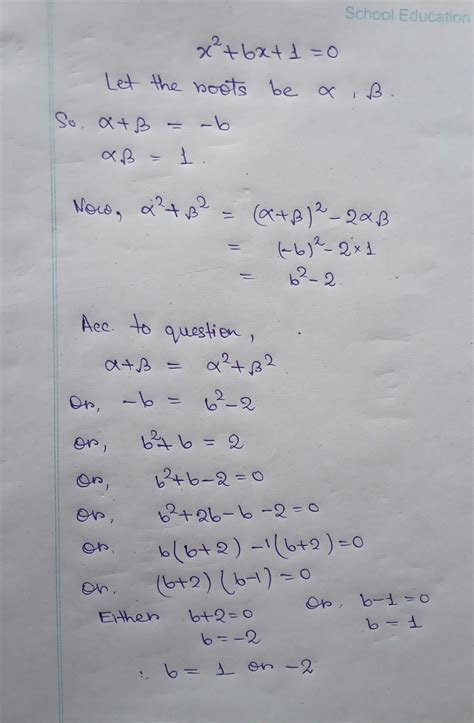 School Education
x²+bx+1=0
Let the roots be α, β.
So, α+β = -b
αβ = 1.
Now, α²+β² = (α+β)²-2αβ
= (-b)²-2×1
= b²-2.
Acc. to question,
α+β = α²+β²
Or, -b = b²-2
or, b²+b=2
or, b²+b-2=0
or, b²+2b-b-2=0
or. b(b+2)-1(b+2)=0
or. (b+2)(b-1)=0
Either b+2=0 Or, b-1=0
b=-2 b=1
∴ b= 1 or -2